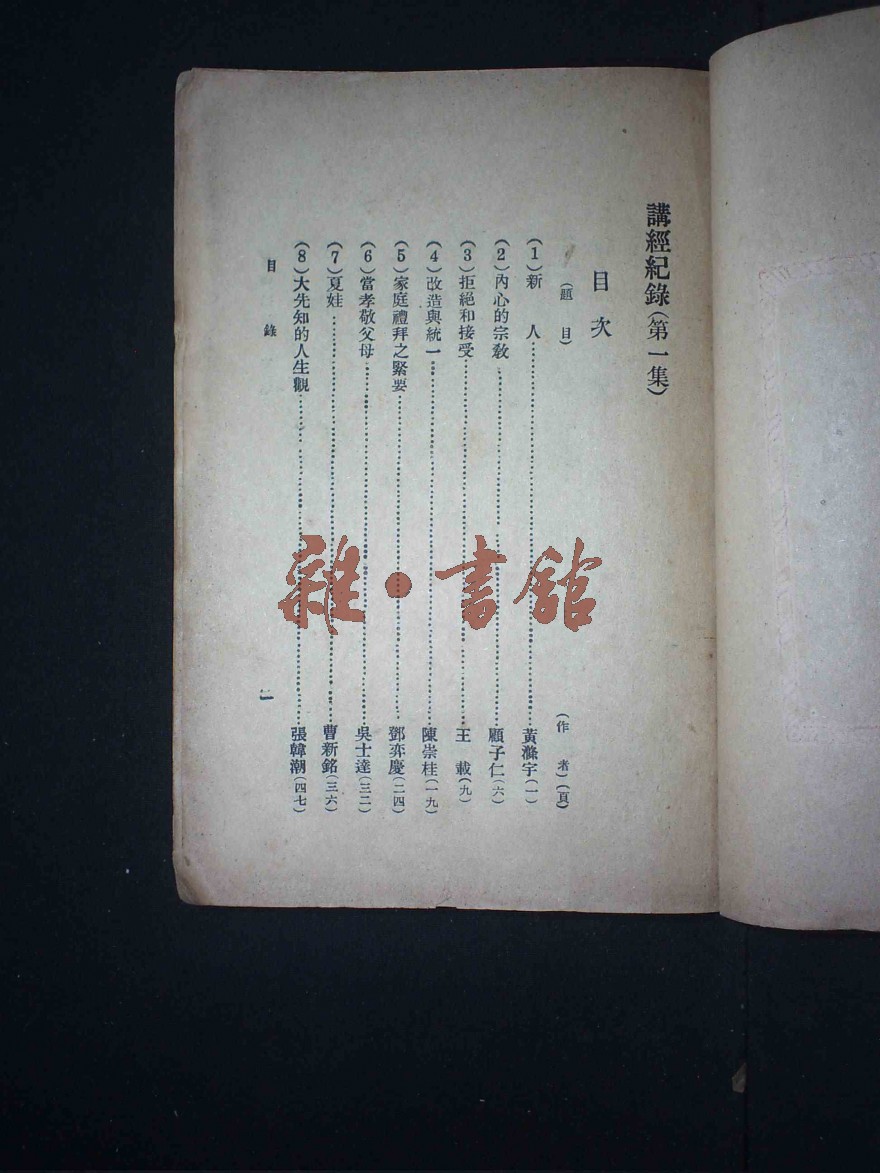 講經紀錄(第一集)
目次
(題目) (作者)(頁)
(1)新人 黃滌宇(一)
(2)內心的宗教 顧子仁(六)
(3)拒絕和接受 王載(九)
(4)改造與統一 陳崇桂(一九)
(5)家庭禮拜之緊要 鄧弈慶(二四)
(6)當孝敬父母 吳士達(三二)
(7)夏娃 曹新銘(三六)
(8)大先知的人生觀 張韓潮(四七)
目錄 一
雜・書館